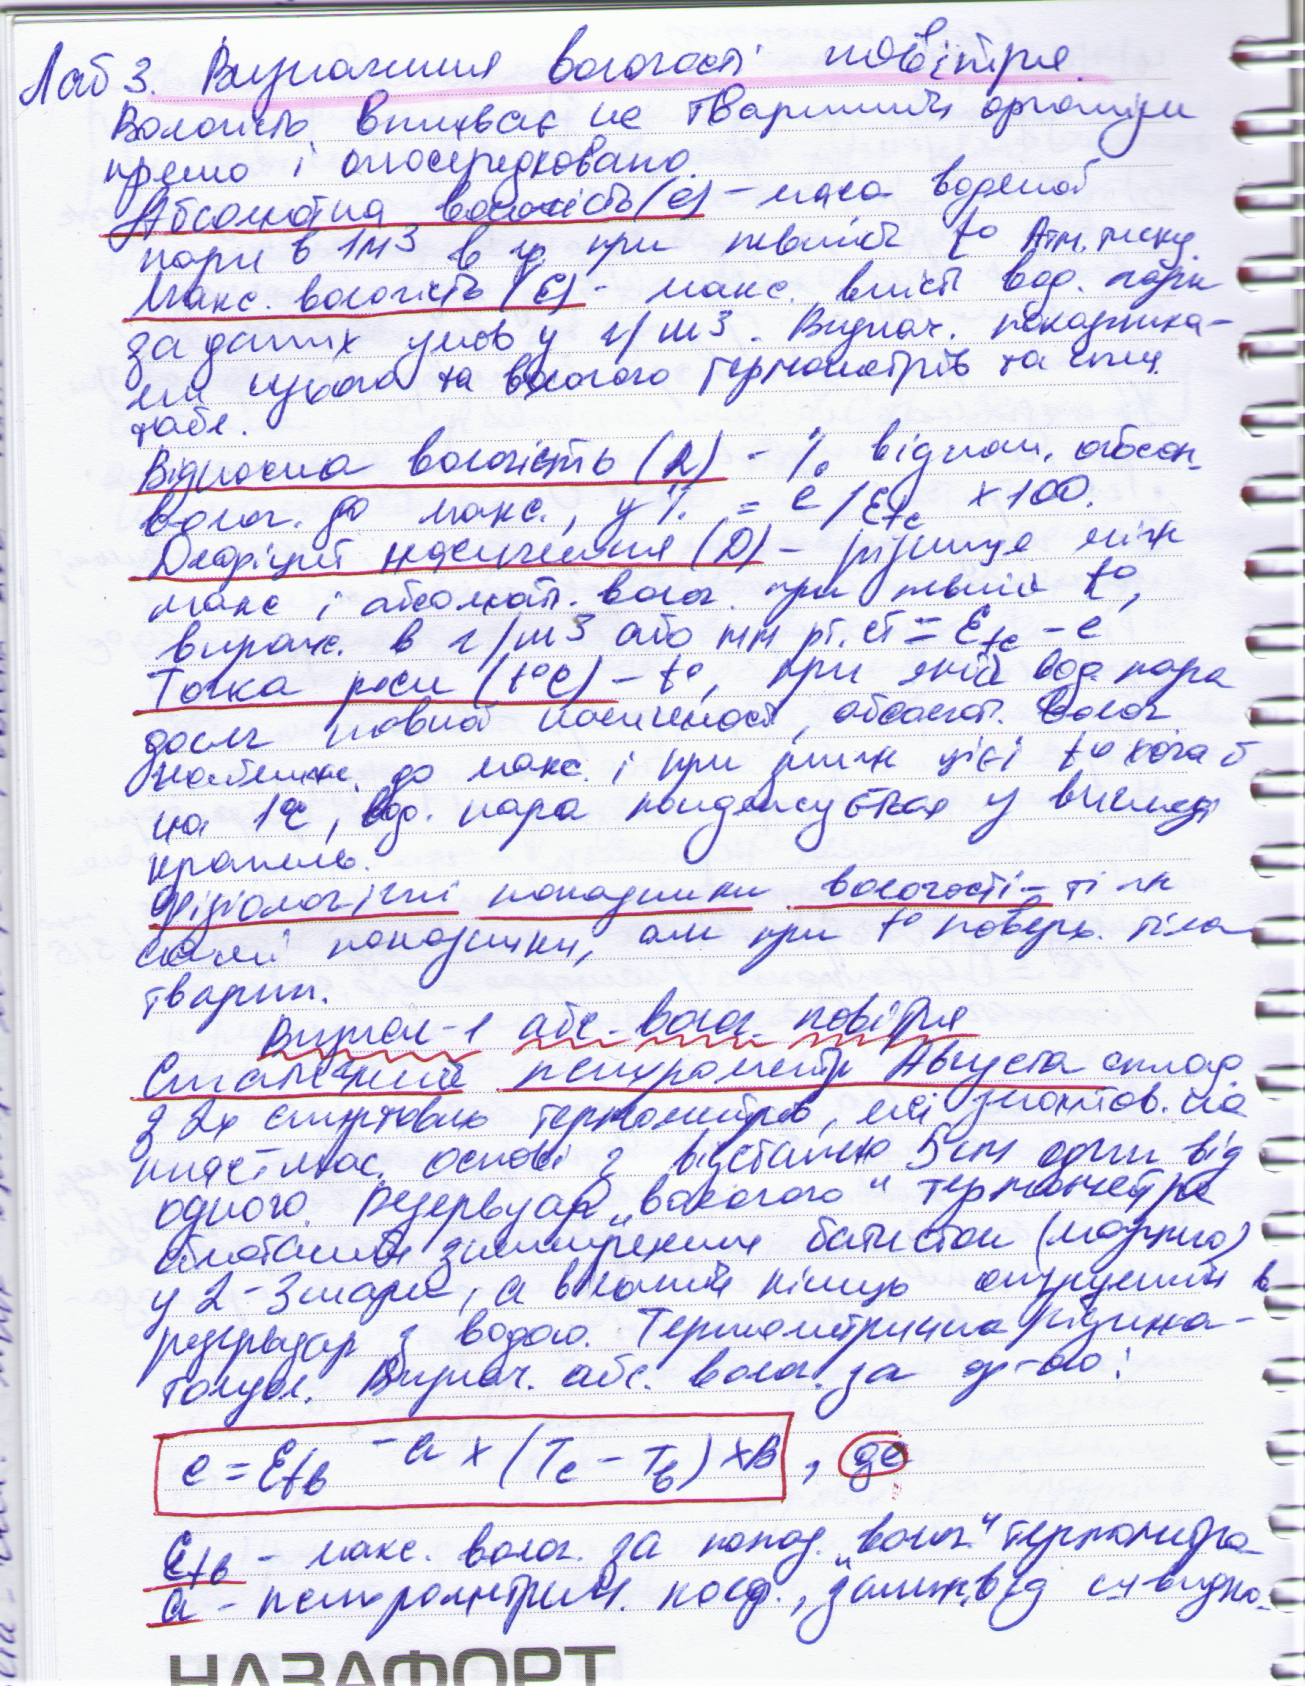 Лаб 3. Визначення вологості повітря.
Вологість впливає на тваринний організм
прямо і опосередковано.
Абсолютна вологість (e) – маса водяної
пари в 1м3 в гр. при певній t° Атм. тиску.
Макс. вологість (E) – макс. вміст вод. пари
за даних умов у г/м3. Визнач. показника-
ми сухого та вологого термометрів та спец.
табл.
Відносна вологість (R) - % віднош. абсол.
волог. до макс., у % = e/Etc х 100.
Дефіцит насичення (D) – різниця між
макс і абсолют. волог. при певній t°,
вираж. в г/м3 або мм рт. ст = Etc – e
Точка роси (t°C) – t°, при якій вод. пара
досяг повної насиченості, абсолют. волог
наближ. до макс. і при зниж цієї t° хоча б
на 1°C, вод. пара конденсується у вигляді
крапель.
Фізіологічні показники вологості – ті ж
самі показники, али при t° поверх. тіла
тварин.
Визнач-я абс. волог. повітря
Статичний психрометр Августа склад.
з 2х спиртових термометрів, які змонтов. на
пластмас. основі з відстанню 5см один від
одного. Резервуар „вологого" термометра
обмотаний батистом (марлею)
у 2-3 шари, а вільний кінець опущений в
резервуар з водою. Термометрична рідина -
толуол. Визнач. абс. волог. за ф-лою:
e = Etв – a х (Tc – Tв) х B , де
Etв – макс. волог. за показ. „волог." термометра
a – психрометричн. коеф., залеж. від швидко-
НАЗАФОРТ